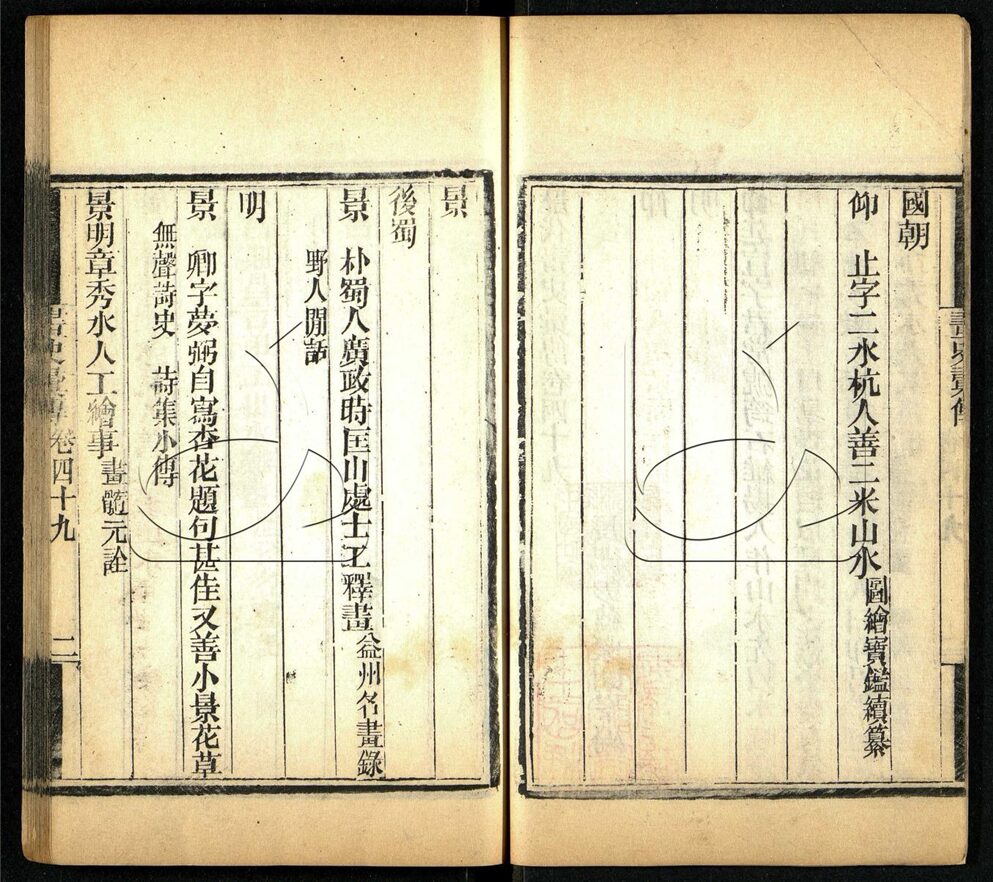 國朝
仰　止字二水杭人善二米山水圖繪寶鑑續纂
景
後蜀
景　朴蜀人廣政時匡山處士工釋畫益州名畫錄
野人閒話
明
景　卿字夢弼自寫杏花題句甚佳又善小景花草
無聲詩史　詩集小傳
景明章秀水人工繪事畫髓元詮
卷四十九　二